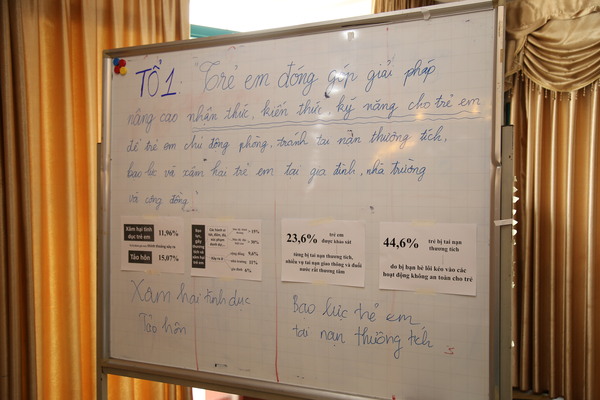 TỔ 1. "Trẻ em đóng góp giải pháp
nâng cao nhận thức, kiến thức, kỹ năng cho trẻ em
để trẻ em chủ động phòng, tránh tai nạn thương tích,
bạo lực và xâm hại trẻ em tại gia đình, nhà trường
và cộng đồng"
Xâm hại tình dục trẻ em 11,96%
Tảo hôn 15,07%
23,6% trẻ em được khảo sát
từng bị tai nạn thương tích,
nhiều vụ tai nạn giao thông và đuối
nước rất thương tâm
44,6% trẻ bị tai nạn thương tích
do bị bạn bè lôi kéo vào các
hoạt động không an toàn cho trẻ
Xâm hại tình dục
Tảo hôn
Bạo lực trẻ em
tai nạn thương tích